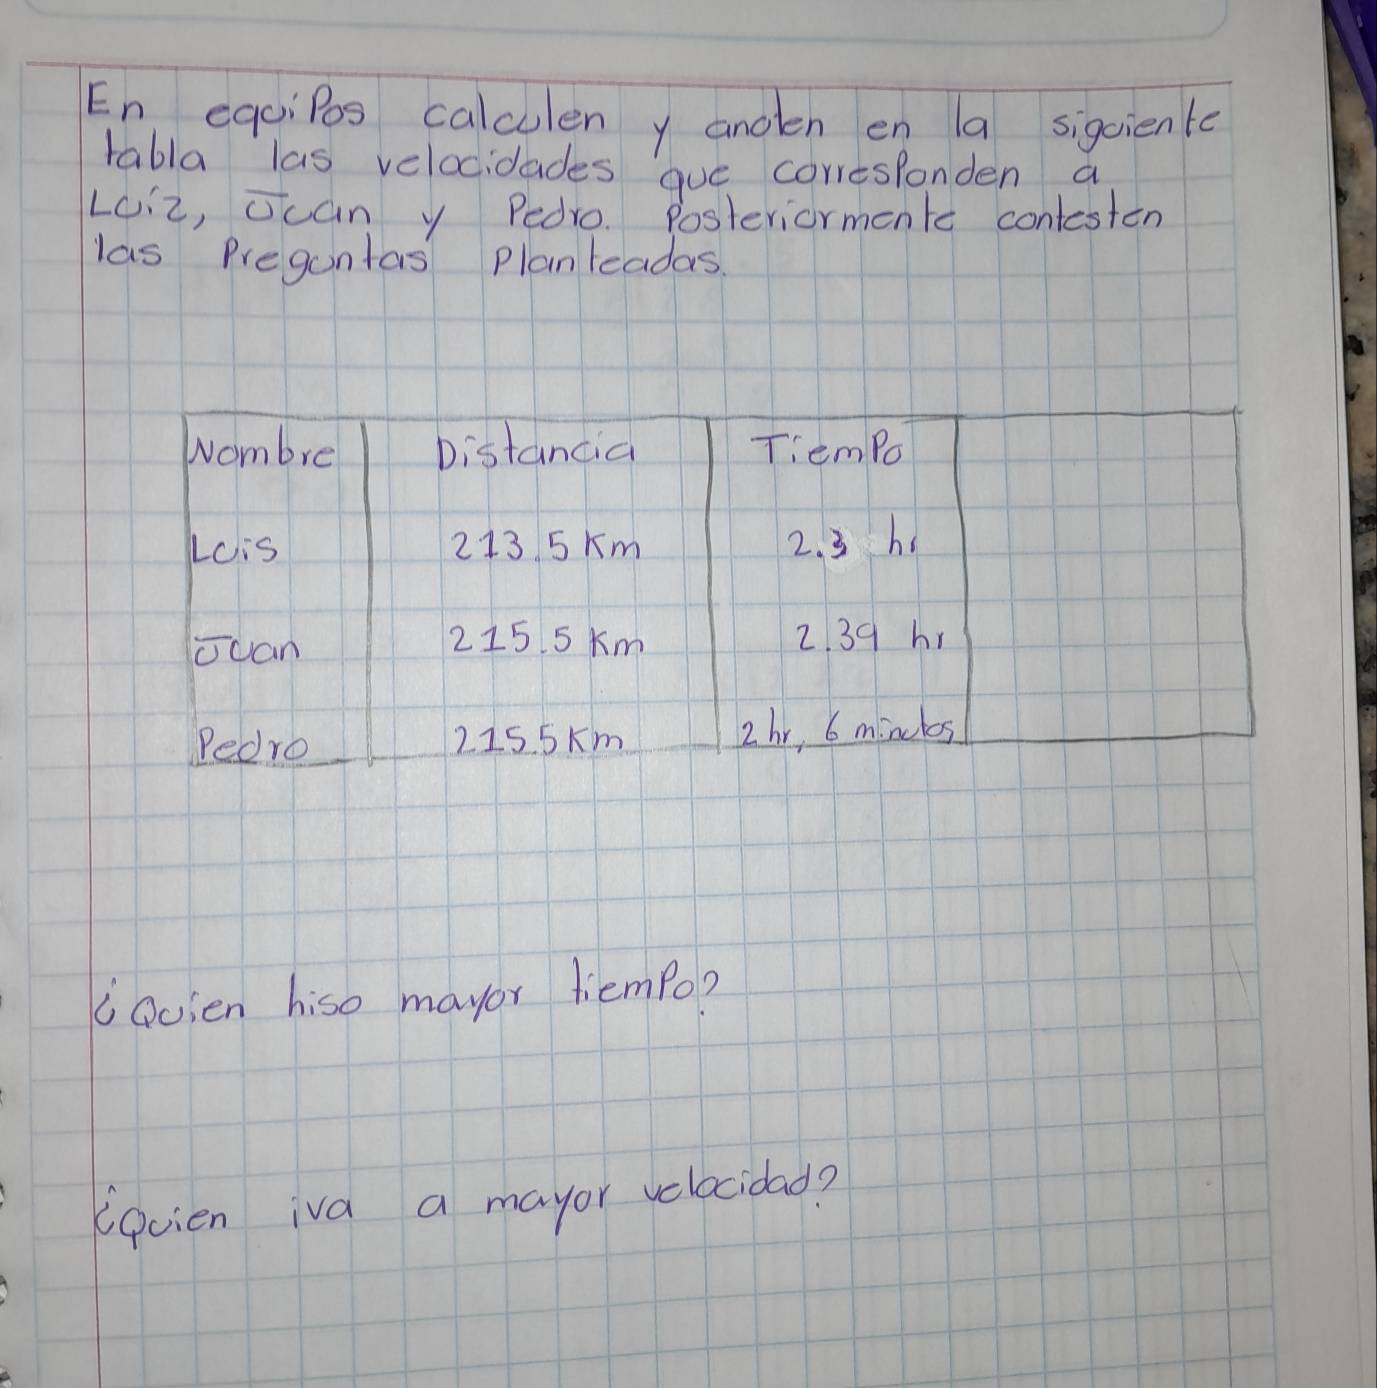 En equipos calculen y anoten en la siguiente
tabla las velocidades que corresponden a
Luiz, Juan y Pedro. Posteriormente contesten
las Preguntas Planteadas.
Nombre Distancia Tiempo
Luis 213.5 Km 2.3 hr
Juan 215.5 Km 2.39 hr
Pedro 215.5 Km 2 hr, 6 minutos
¿Quien hiso mayor tiempo?
¿Quien iva a mayor velocidad?